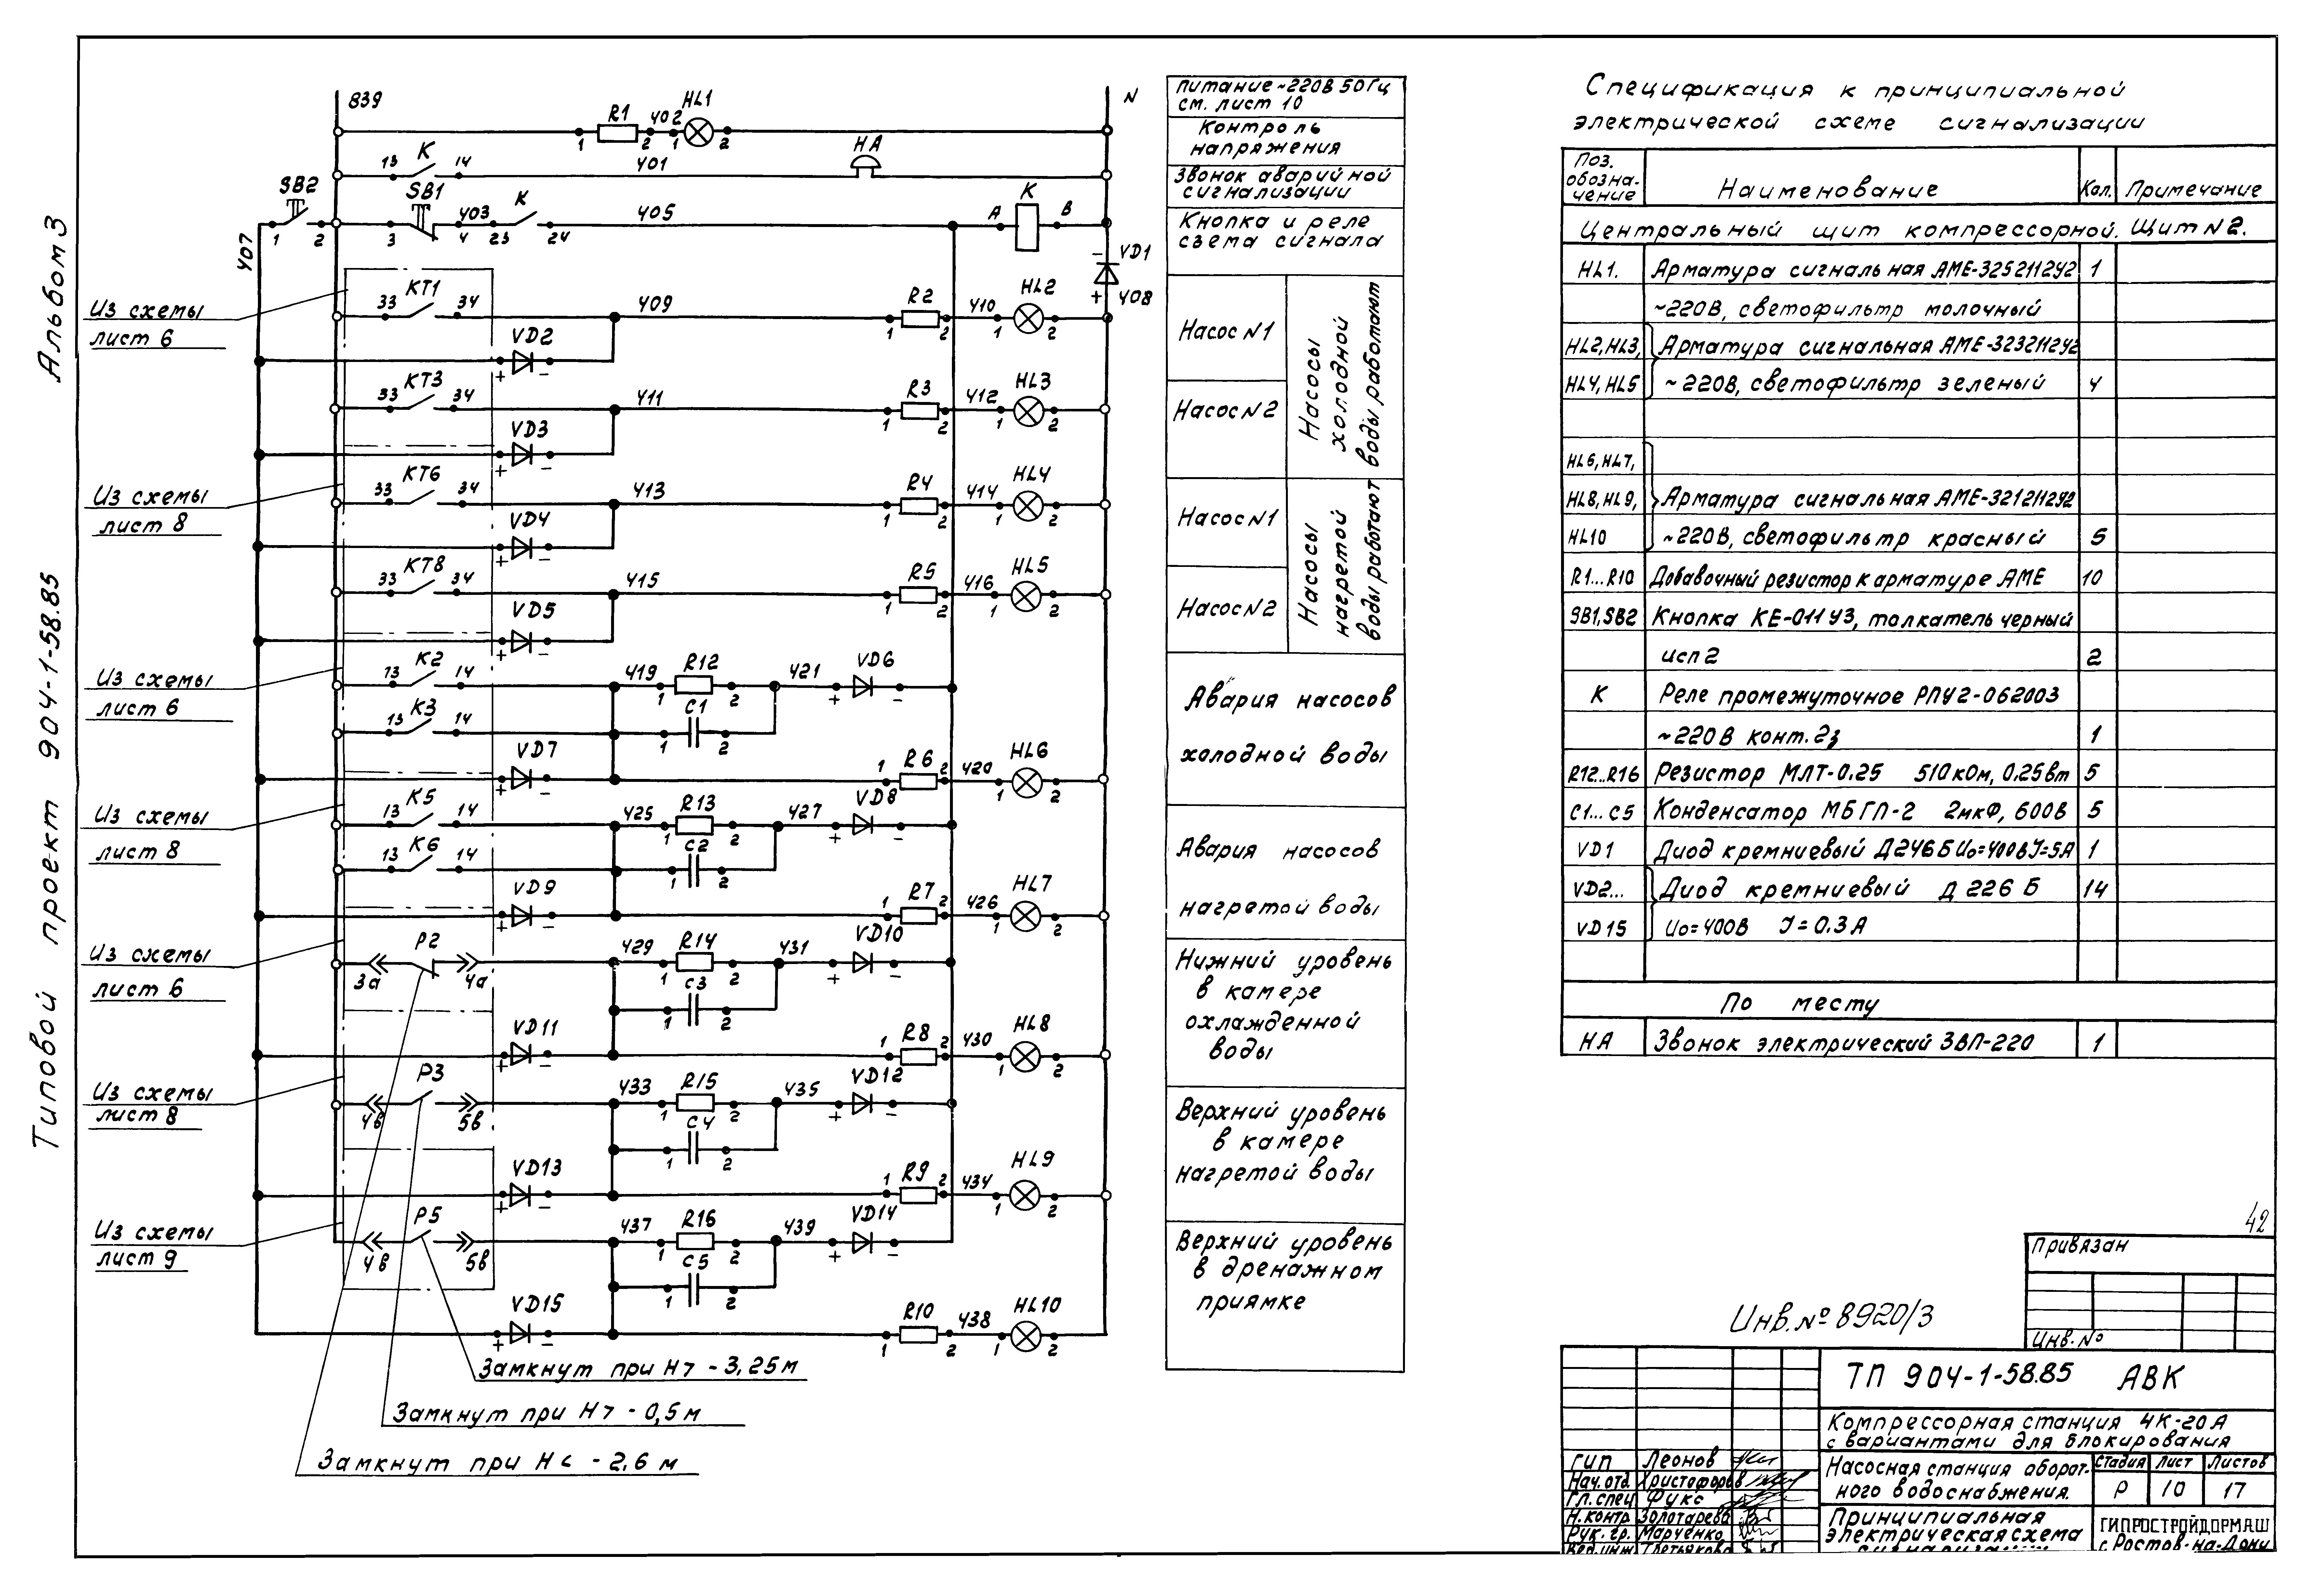 Альбом 3
Типовой проект 904-1-58.85
839
N
R1
402
HL1
1
2
1
2
K
13
14
401
HA
SB2
1
2
SB1
3
4
403
K
23
24
405
K
A
B
407
VD1
-
+
408
Из схемы
лист 6
KT1
33
34
409
R2
1
2
410
HL2
1
2
VD2
+
-
KT3
33
34
411
R3
1
2
412
HL3
1
2
VD3
+
-
Из схемы
лист 8
KT6
33
34
413
R4
1
2
414
HL4
1
2
VD4
+
-
KT8
33
34
415
R5
1
2
416
HL5
1
2
VD5
+
-
Из схемы
лист 6
K2
13
14
419
R12
1
2
421
VD6
+
-
K3
13
14
C1
1
2
VD7
+
-
R6
1
2
420
HL6
1
2
Из схемы
лист 8
K5
13
14
425
R13
1
2
427
VD8
+
-
K6
13
14
C2
1
2
VD9
+
-
R7
1
2
426
HL7
1
2
Из схемы
лист 6
P2
3а
4а
429
R14
1
2
431
VD10
+
-
C3
1
2
VD11
+
-
R8
1
2
430
HL8
1
2
Из схемы
лист 8
P3
4в
5в
433
R15
1
2
435
VD12
+
-
C4
1
2
VD13
+
-
R9
1
2
434
HL9
1
2
Из схемы
лист 9
P5
4в
5в
437
R16
1
2
439
VD14
+
-
C5
1
2
VD15
+
-
R10
1
2
438
HL10
1
2
Замкнут при H> -3,25м
Замкнут при H> -0,5м
Замкнут при H< -2,6м
Питание ~220В 50Гц
см. лист 10
Контроль
напряжения
Звонок аварийной
сигнализации
Кнопка и реле
съема сигнала
Насос N1
Насос N2
Насосы
холодной
воды работают
Насос N1
Насос N2
Насосы
нагретой
воды работают
Авария насосов
холодной воды
Авария насосов
нагретой воды
Нижний уровень
в камере
охлажденной
воды
Верхний уровень
в камере
нагретой воды
Верхний уровень
в дренажном
приямке
Спецификация к принципиальной
электрической схеме сигнализации
Поз.
обозна-
чение
Наименование
Кол.
Примечание
Центральный щит компрессорной. Щит N2.
HL1. Арматура сигнальная АМЕ-325211242 1
~220В, светофильтр молочный
HL2, HL3, Арматура сигнальная АМЕ-323211242
HL4, HL5 ~220В, светофильтр зеленый 4
HL6, HL7,
HL8, HL9, Арматура сигнальная АМЕ-321211242
HL10 ~220В, светофильтр красный 5
R1...R10 Добавочный резистор к арматуре АМЕ 10
SB1, SB2 Кнопка КЕ-011У3, толкатель черный
исп 2 2
K Реле промежуточное РПУ2-062003
~220В конт. 2з 1
R12...R16 Резистор МЛТ-0.25 510кОм, 0.25вт 5
C1...C5 Конденсатор МБГП-2 2мкФ, 600В 5
VD1 Диод кремниевый Д246Б Uо=400В J=5A 1
VD2... Диод кремниевый Д226Б 14
VD15 Uо=400В J=0.3А
По месту
HA Звонок электрический ЗВП-220 1
42
Привязан
Инв. №
Инв. № 8920/3
ТП 904-1-58.85 АВК
Компрессорная станция 4К-20А
с вариантами для блокирования
ГИП Леонов
Нач. отд. Христофоров
Гл. спец Фукс
Н. контр Золотарева
Рук. гр. Марченко
Вед. инж Третьякова
Насосная станция оборот-
ного водоснабжения.
Стадия Лист Листов
Р 10 17
Принципиальная
электрическая схема
сигнализации
ГИПРОСТРОЙДОРМАШ
г. Ростов-на-Дону